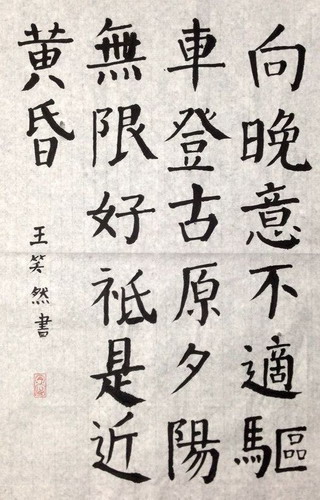 向晚意不適驅
車登古原夕陽
無限好祗是近
黃昏
王笑然書